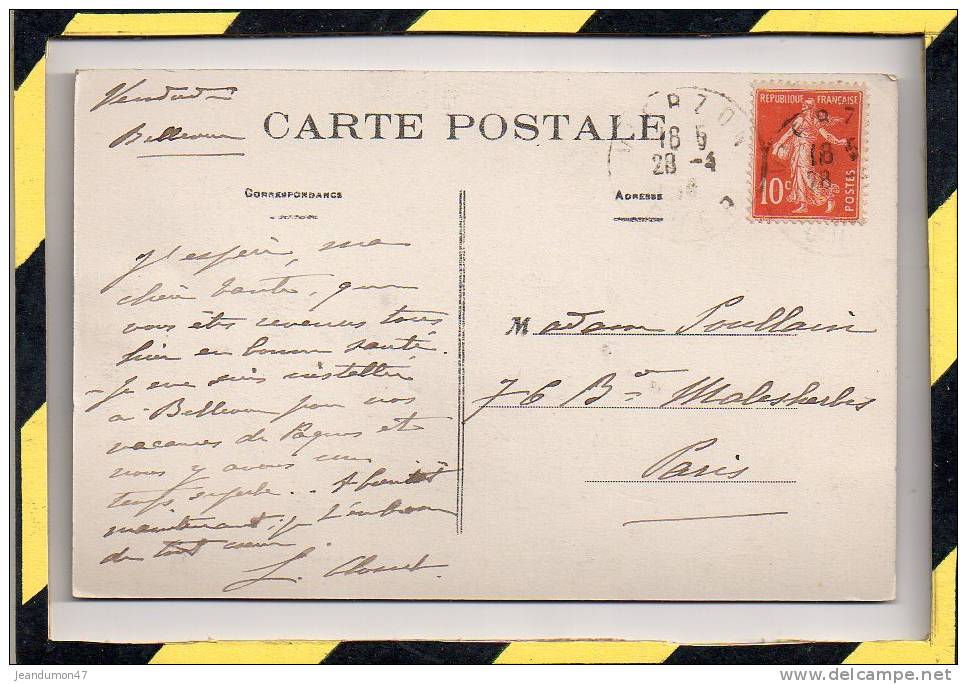 Vendredi
Bellevue
CARTE POSTALE
REPUBLIQUE FRANÇAISE
10c
POSTES
18 5
28 -4
CORRESPONDANCE
ADRESSE
J'espère, ma
chère tante, que
vous êtes revenus tous
hier en bonne santé.
- Je me suis installée
à Bellevue pour nos
vacances de Pâques et
nous y avons un
temps superbe.. A bientôt
maintenant, je t'embrasse
de tout cœur
Madame Poullain
76 Bd Malesherbes
Paris
jeandumon47